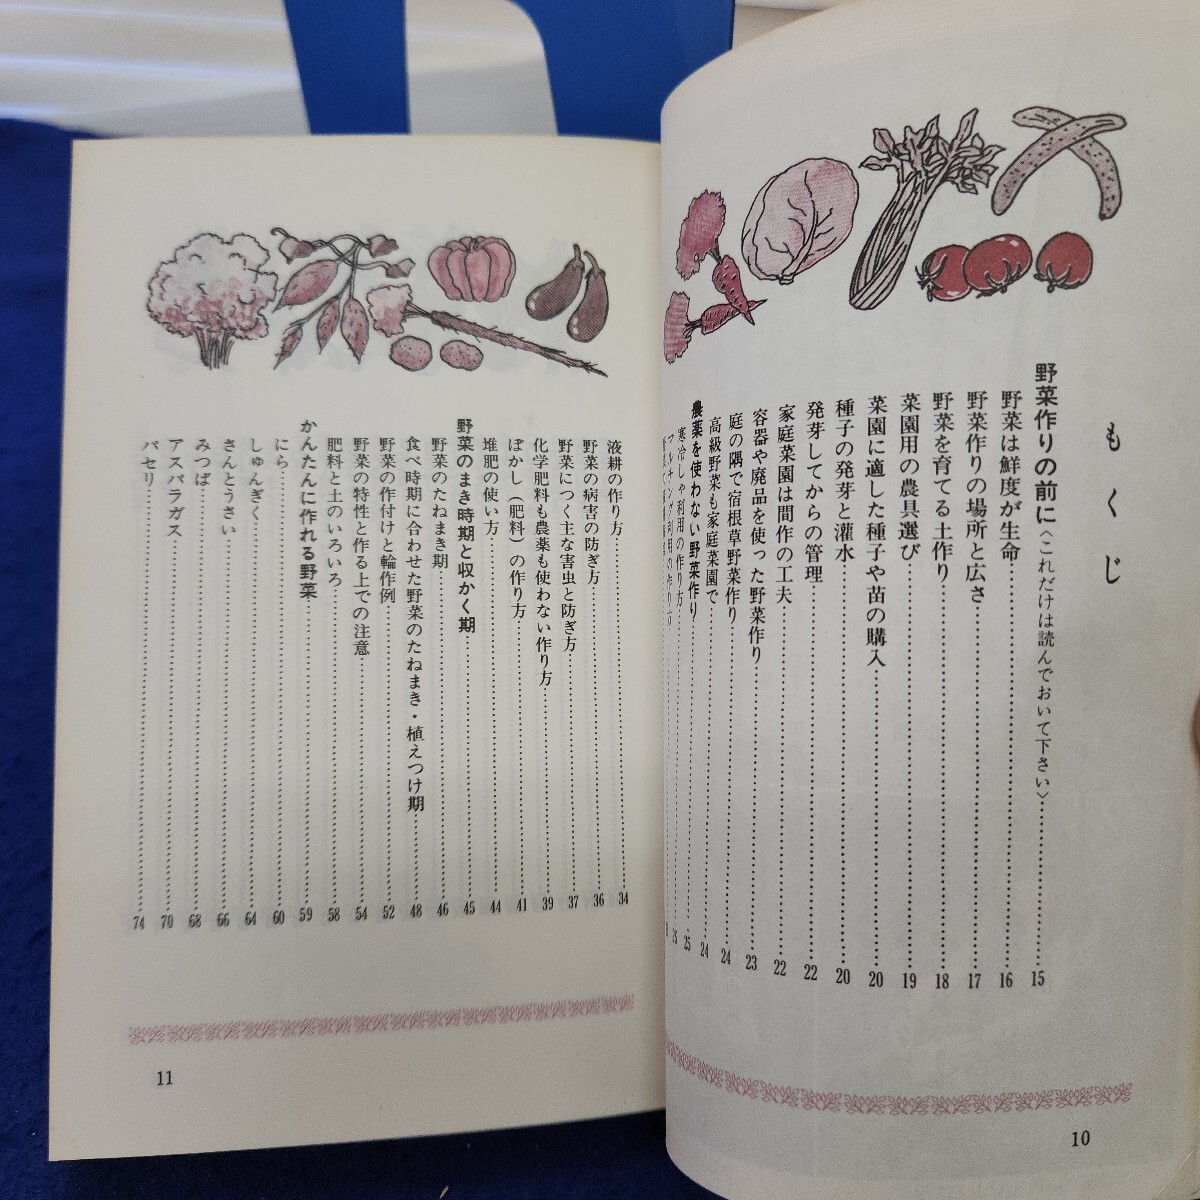 もくじ
野菜作りの前に〈これだけは読んでおいて下さい〉 15
野菜は鮮度が生命 16
野菜作りの場所と広さ 17
野菜を育てる土作り 18
菜園用の農具選び 19
菜園に適した種子や苗の購入 20
種子の発芽と灌水 20
発芽してからの管理 22
家庭菜園は間作の工夫 22
容器や廃品を使った野菜作り 23
庭の隅で宿根草野菜作り 24
高級野菜も家庭菜園で 24
農薬を使わない野菜作り 25
寒冷しゃ利用の作り方
10
液耕の作り方 34
野菜の病害の防ぎ方 36
野菜につく主な害虫と防ぎ方 37
化学肥料も農薬も使わない作り方 39
ぼかし（肥料）の作り方 41
堆肥の使い方 44
野菜のまき時期と収かく期 45
野菜のたねまき期 46
食べ時期に合わせた野菜のたねまき・植えつけ期 48
野菜の作付けと輪作例 52
野菜の特性と作る上での注意 54
肥料と土のいろいろ 58
かんたんに作れる野菜 59
にら 60
しゅんぎく 64
さんとうさい 66
みつば 68
アスパラガス 70
パセリ 74
11